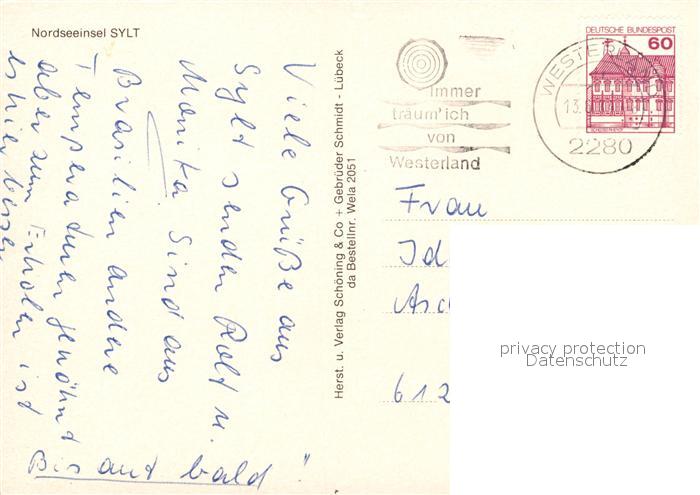 Nordseeinsel SYLT
Viele Grüße aus
Sylt senden Rolf u.
Monika. Sind aus
Brasilien andere
Temperaturen gewöhnt
aber zum Erholen ist
es hier
Bis auf bald"
Herst. u. Verlag Schöning & Co + Gebrüder Schmidt - Lübeck
da Bestellnr. Wela 2051
Immer
träum'ich
von
Westerland
WESTER
13.
2280
DEUTSCHE BUNDESPOST
60
Frau
Id
612
privacy protection
Datenschutz